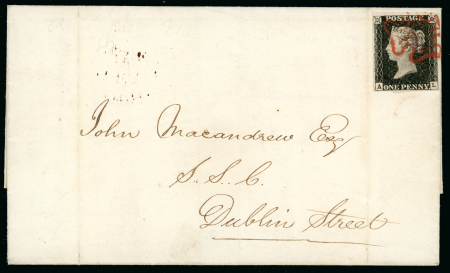 POSTAGE
ONE PENNY
John Macandrew Esq
S.S.C.
Dublin Street